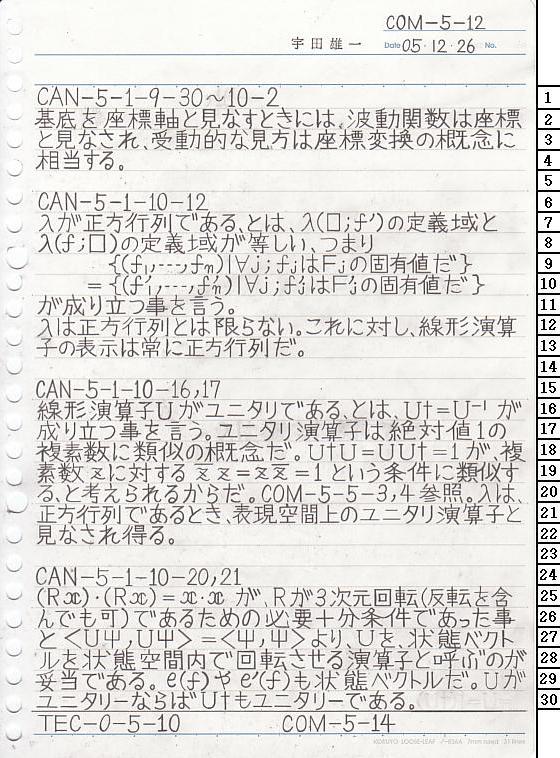 COM-5-12
宇田雄一 Date 05・12・26 No.
CAN-5-1-9-30~10-2
基底を座標軸と見なすときには、波動関数は座標
と見なされ、受動的な見方は座標変換の概念に
相当する。
CAN-5-1-10-12
λが正方行列である、とは、λ(□;f′)の定義域と
λ(f;□)の定義域が等しい、つまり
{(f₁,…,fₙ)|∀j;fⱼはFⱼの固有値だ}
={(f′₁,…,f′ₙ)|∀j;f′ⱼはF′ⱼの固有値だ}
が成り立つ事を言う。
λは正方行列とは限らない。これに対し、線形演算
子の表示は常に正方行列だ。
CAN-5-1-10-16,17
線形演算子Uがユニタリである、とは、U†=U⁻¹が
成り立つ事を言う。ユニタリ演算子は絶対値1の
複素数に類似の概念だ。U†U=UU†=1が、複
素数zに対するz̅z=zz̅=1という条件に類似す
る、と考えられるからだ。COM-5-5-3,4参照。λは、
正方行列であるとき、表現空間上のユニタリ演算子と
見なされ得る。
CAN-5-1-10-20,21
(Rx)・(Rx)=x・xが、Rが3次元回転(反転を含
んでも可)であるための必要十分条件であった事
と<UΨ,UΨ>=<Ψ,Ψ>より、Uを、状態ベクト
ルを状態空間内で回転させる演算子と呼ぶのが
妥当である。e(f)やe′(f)も状態ベクトルだ。Uが
ユニタリーならばU†もユニタリーである。
TEC-0-5-10 COM-5-14
KOKUYO LOOSE-LEAF 7mm ruled 31 lines
1
2
3
4
5
6
7
8
9
10
11
12
13
14
15
16
17
18
19
20
21
22
23
24
25
26
27
28
29
30